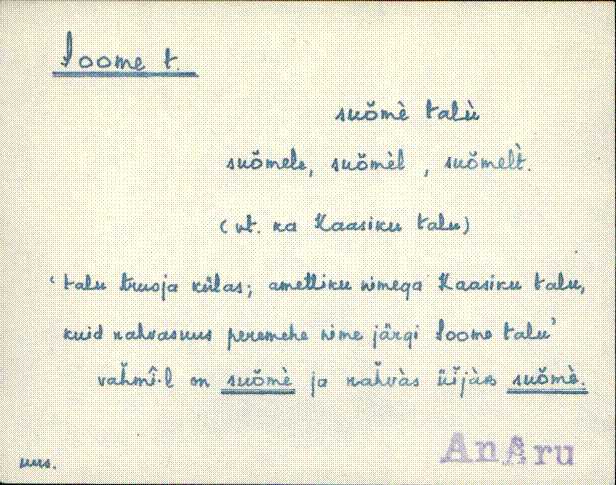 Soome t.
suŏmè talù
suŏmele, suŏmèl, suŏmelt̀.
(vt. ka Kaasiku talu)
‘talu Truoja külas; ametliku nimega Kaasiku talu,
kuid rahvasuus peremehe nime järgi Soome talu’
vah̆mî·l on suŏmè ja rah̆vàs üi̯jàs suŏmè.
AnAru